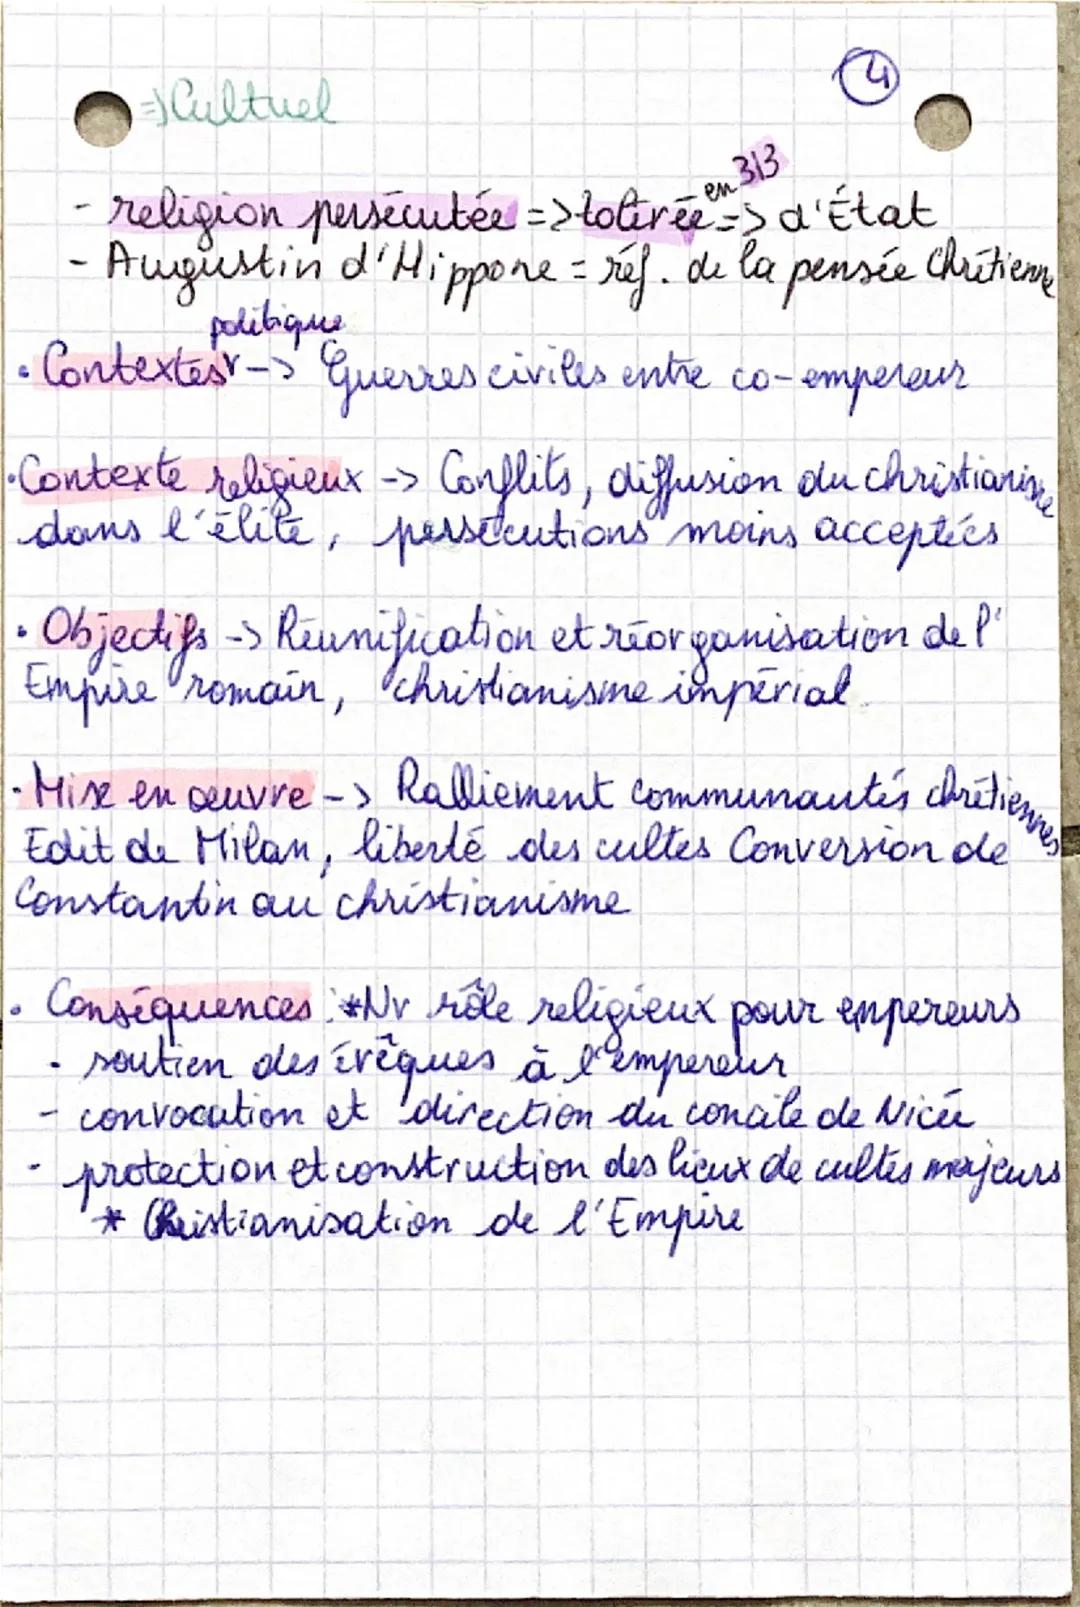 ④
=> Cultuel
- religion persécutée => tolérée en 313 => d'État
- Augustin d'Hippone = réf. de la pensée Chrétienne
politique
• Contextes -> Guerres civiles entre co-empereur
• Contexte religieux -> Conflits, diffusion du christianisme
dans l'élite, persécutions moins acceptés
• Objectifs -> Réunification et réorganisation de l'
Empire romain, christianisme impérial.
• Mise en œuvre -> Ralliement communautés chrétiennes
Edit de Milan, liberté des cultes Conversion de
Constantin au christianisme
• Conséquences : *Nv rôle religieux pour empereurs
- soutien des évêques à l'empereur
- convocation et direction du concile de Nicée
- protection et construction des lieux de cultes majeurs
* Christianisation de l'Empire